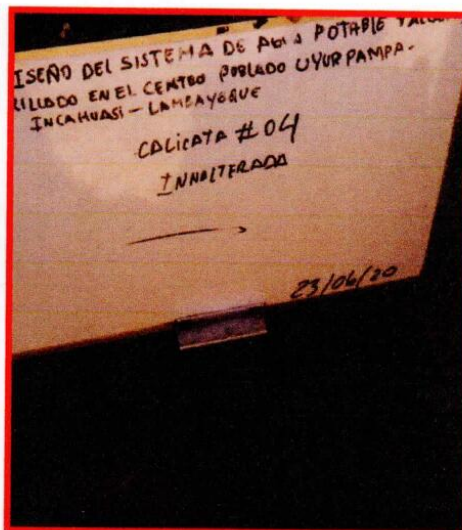 ISEÑO DEL SISTEMA DE AGUA POTABLE Y ALC
RILLADO EN EL CENTRO POBLADO UYURPAMPA-
INCAHUASI - LAMBAYEQUE
CALICATA #04
INNALTERADA
23/06/20